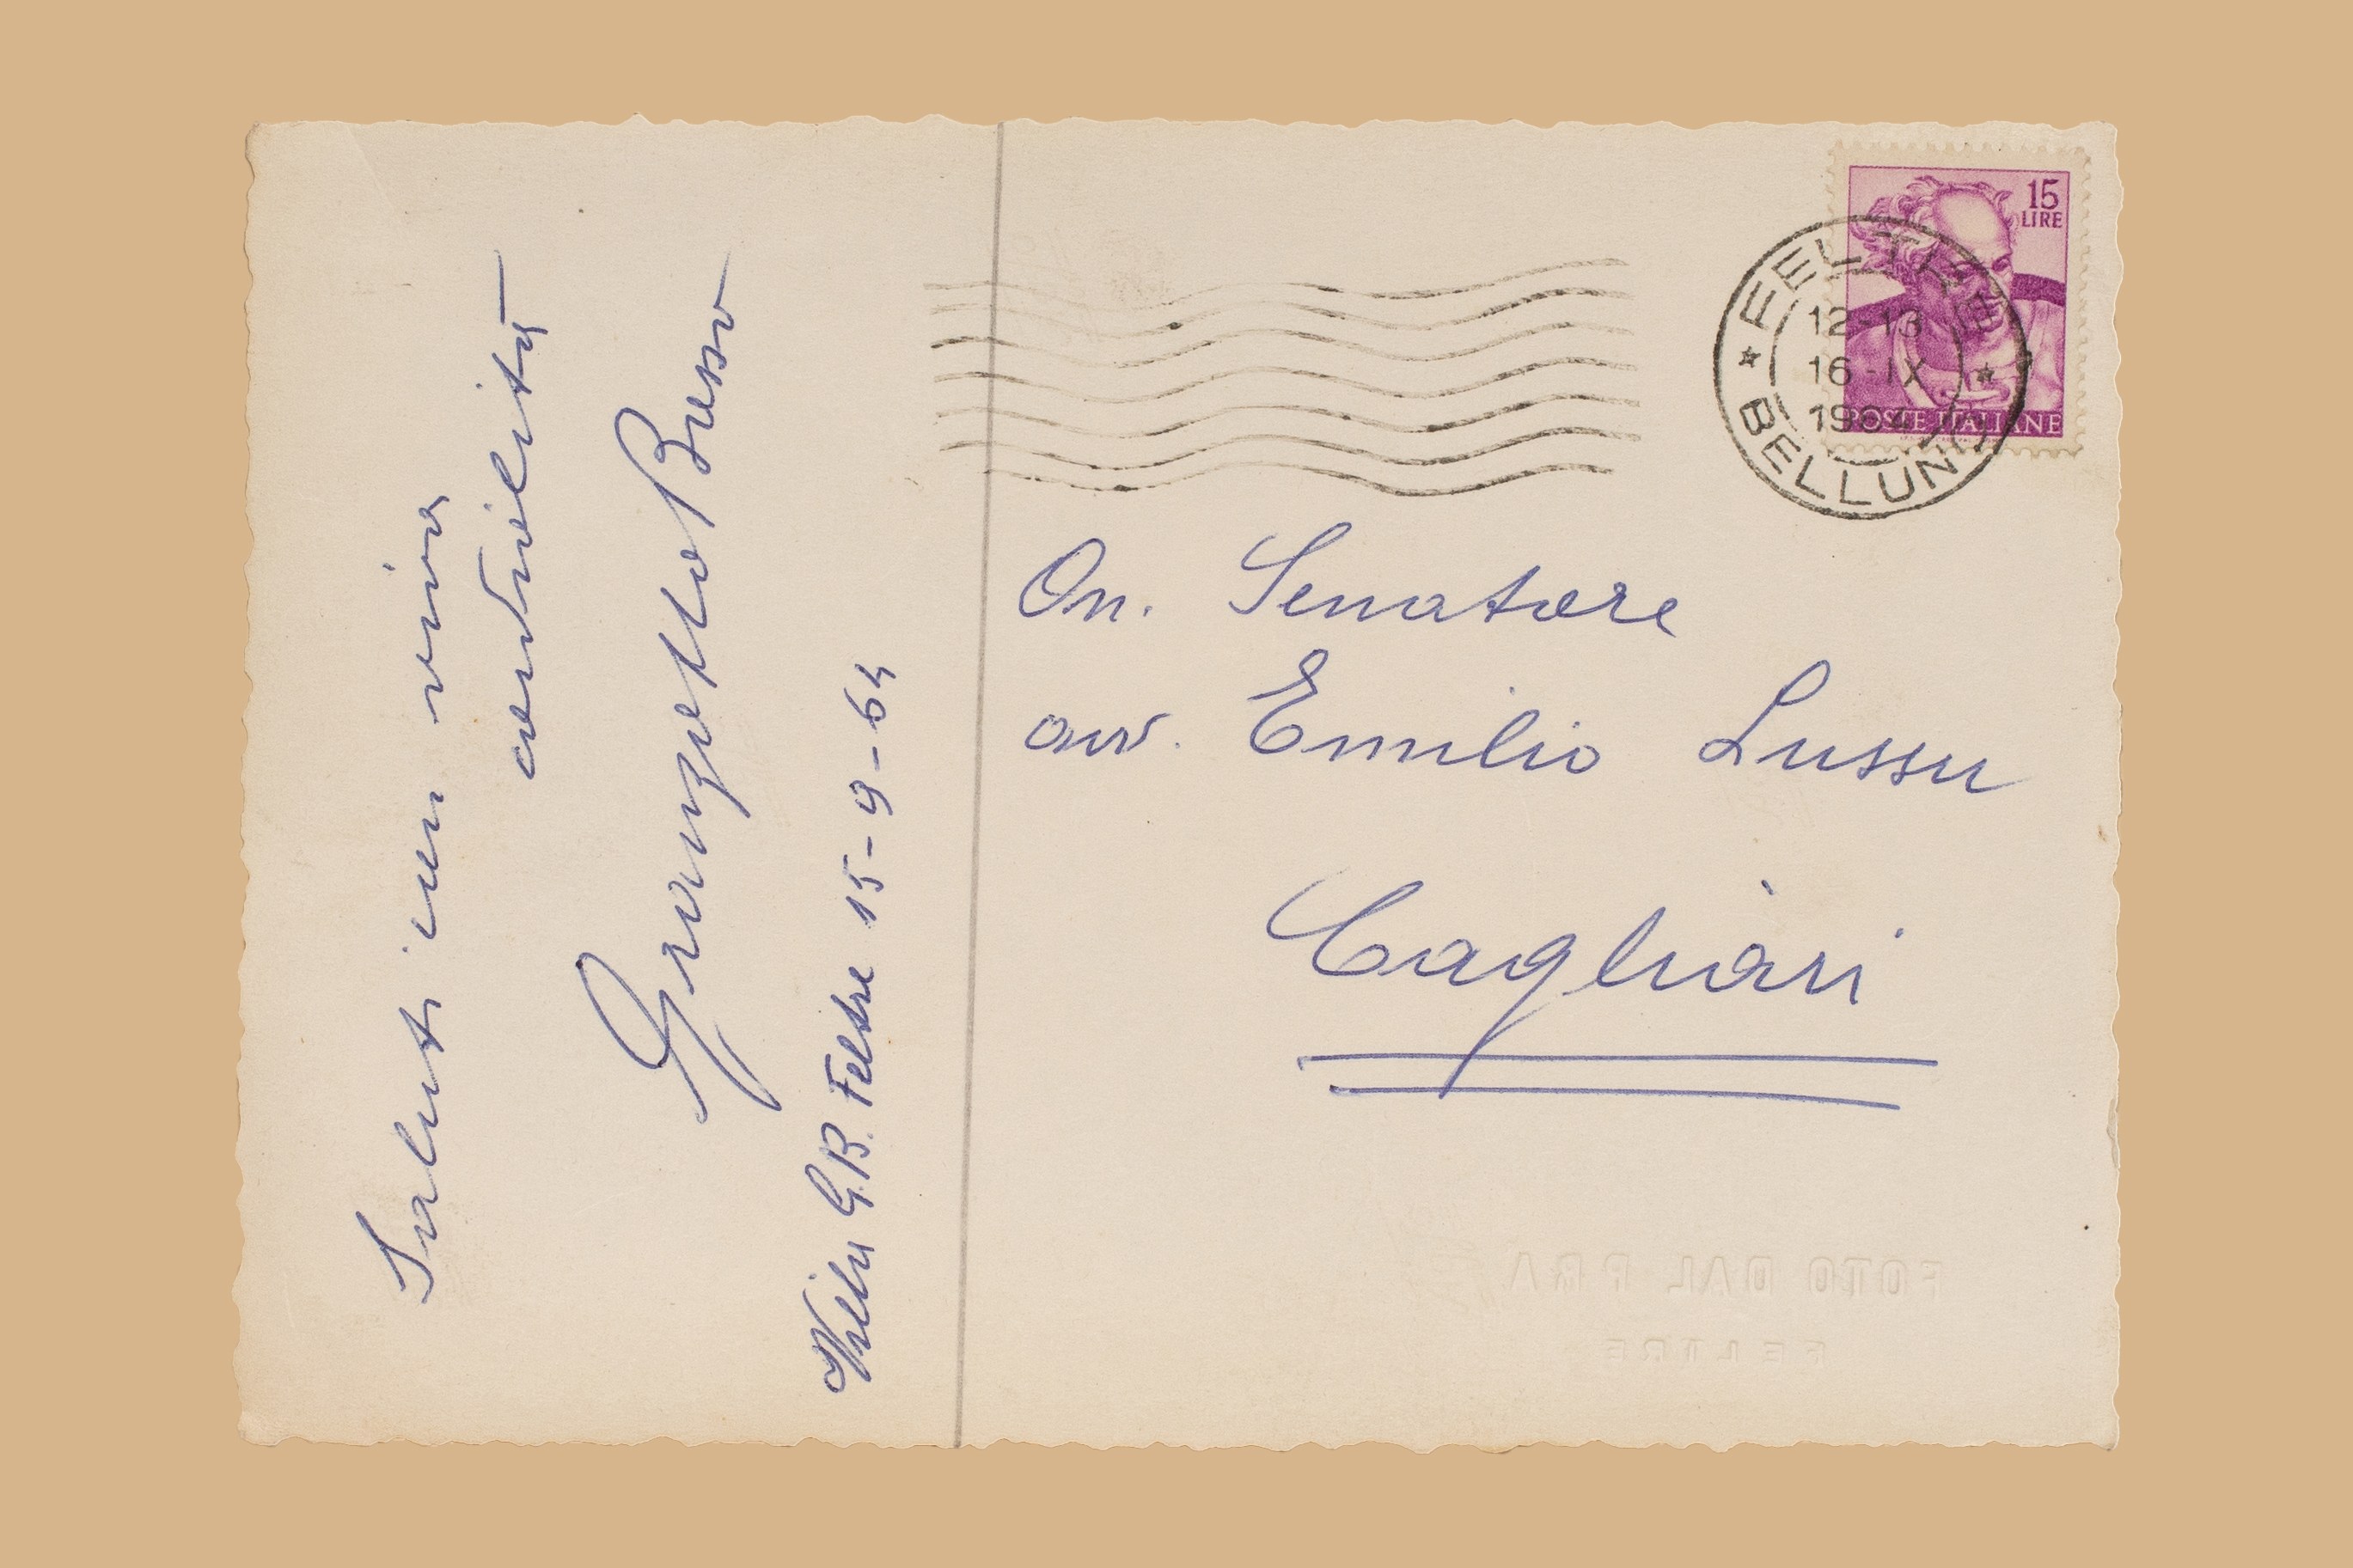 Saluti con viva
cordialità
Granzotto Basso
Villa G.B. Feltre 15-9-64
15
LIRE
POSTE ITALIANE
FELTRE
12-13
16-IX
1964
BELLUNO
On. Senatore
avv. Emilio Lussu
Cagliari
FOTO DAL PRA
FELTRE